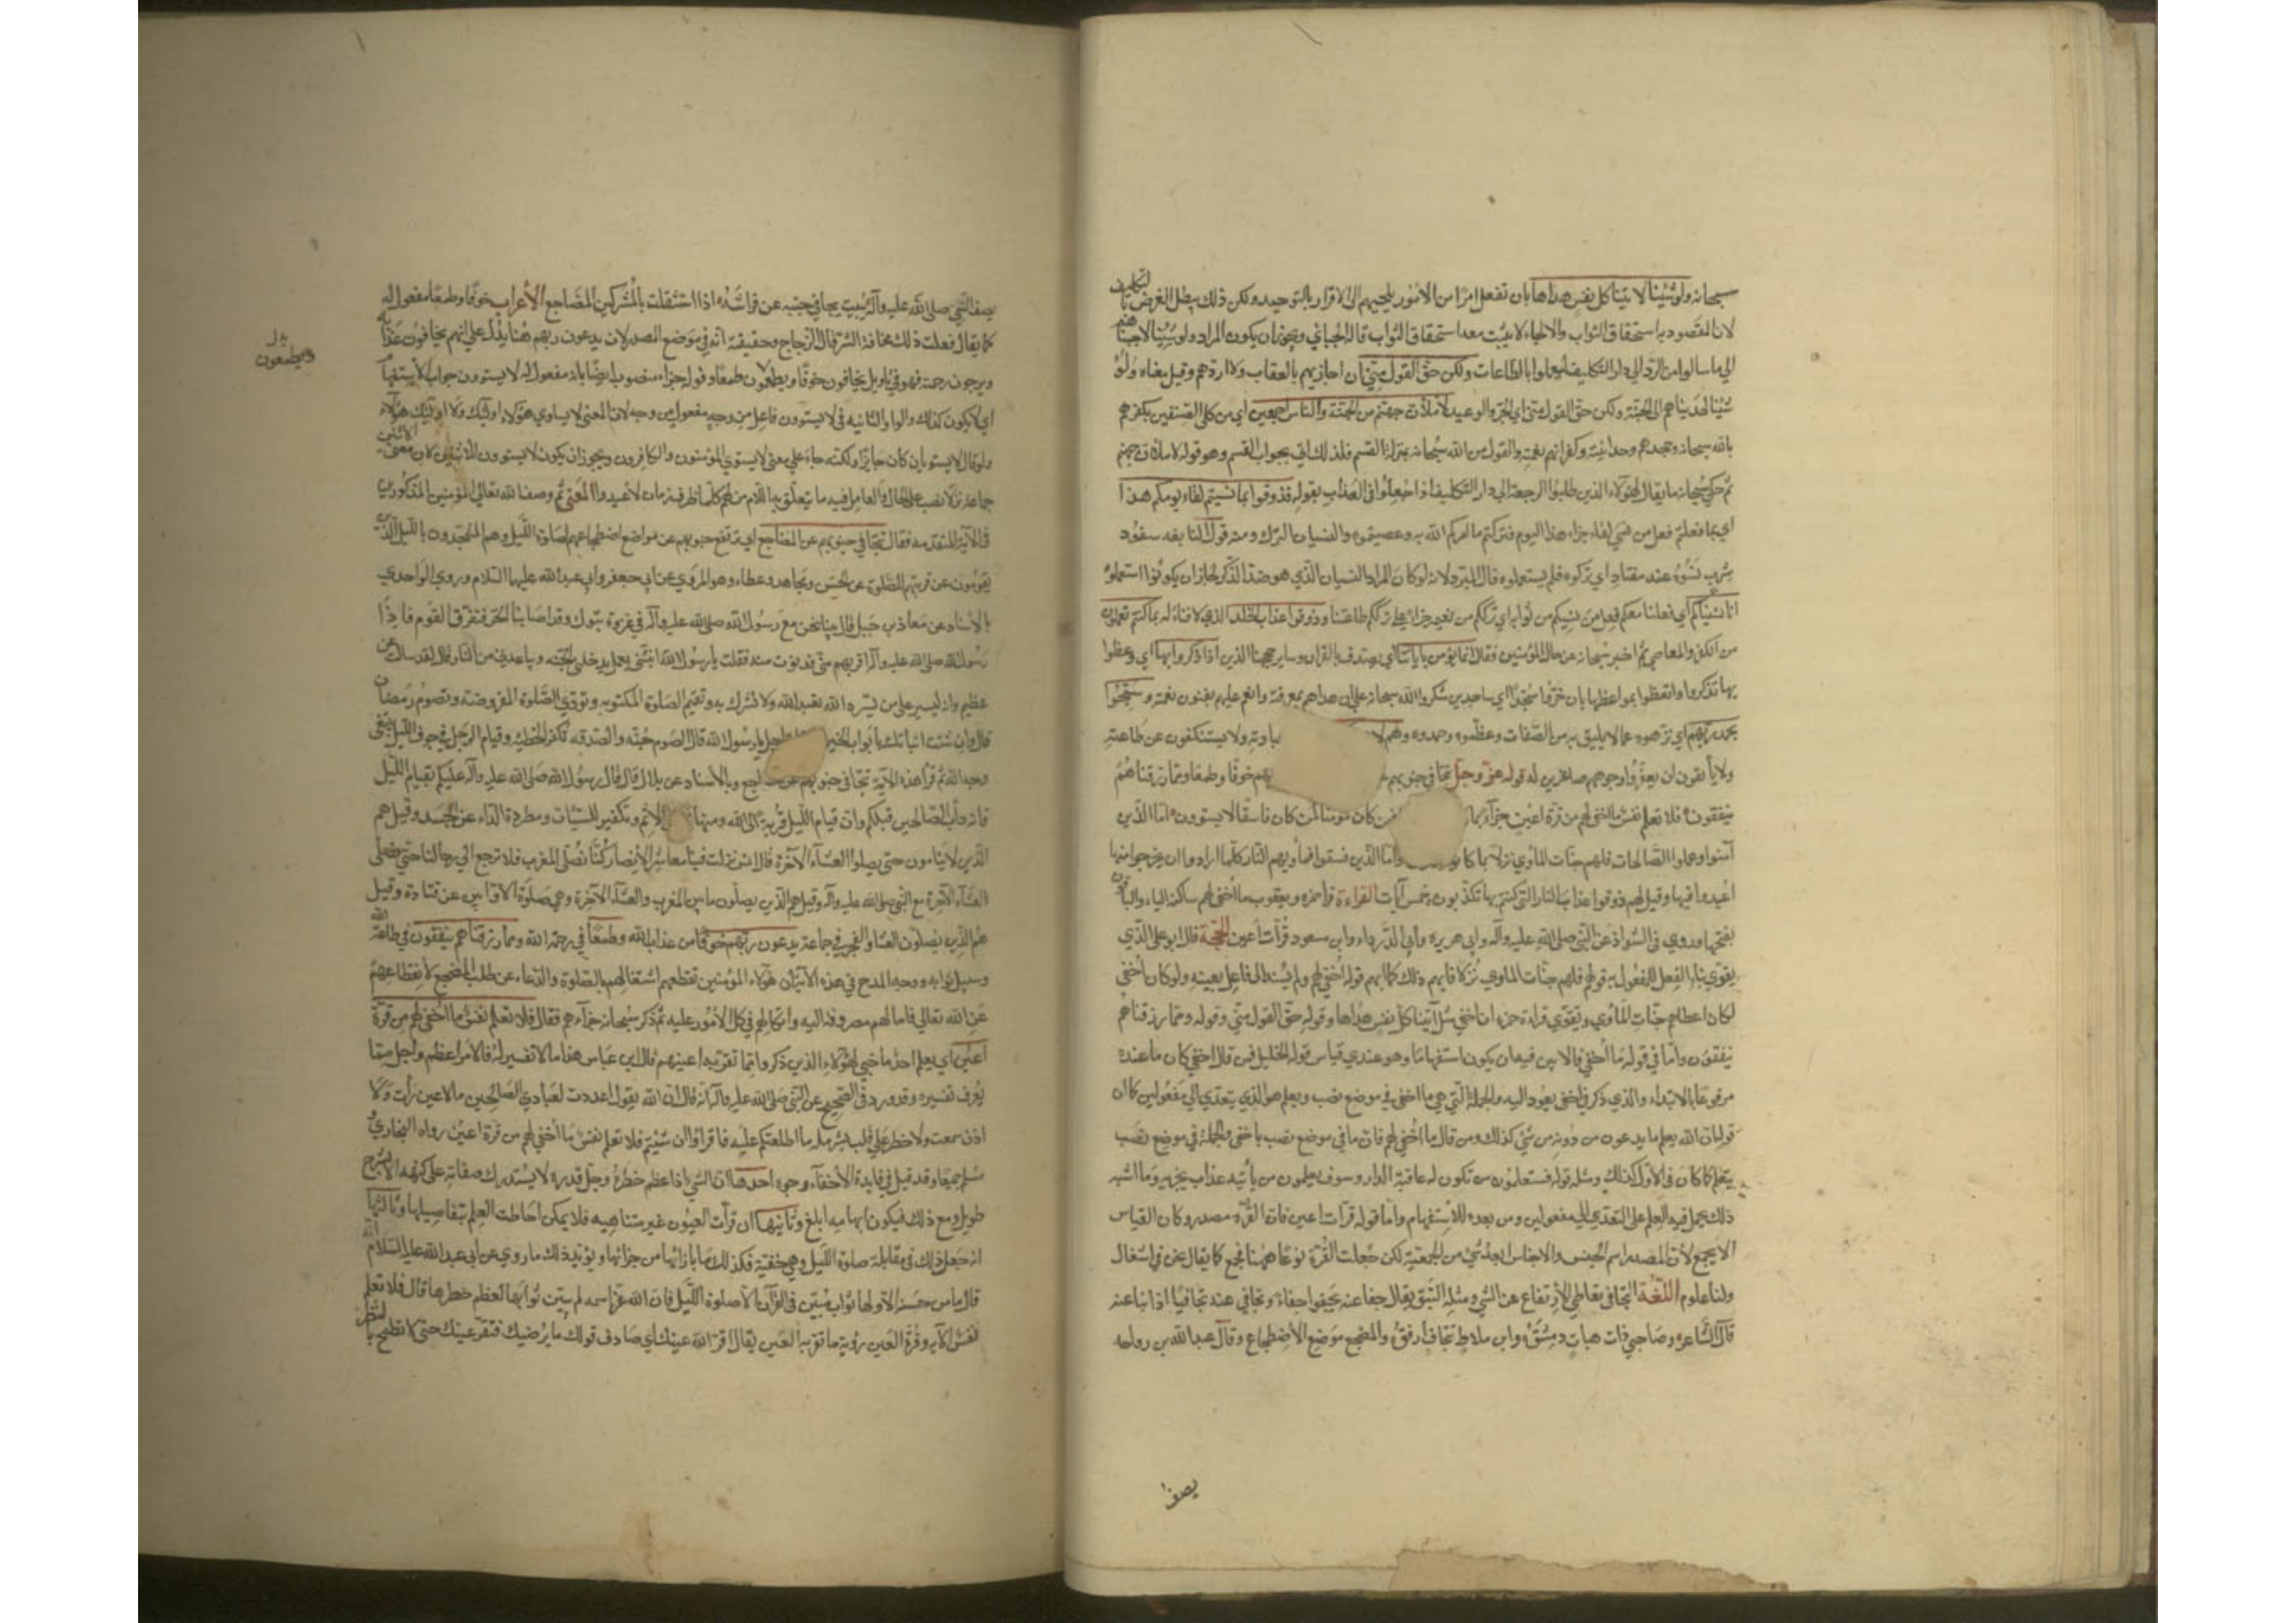 سبحانه ولو شئنا لاتينا كل نفس هداها بان نفعل امرًا من الامور يلجيهم الى الاقرار بالتوحيد ولكن ذلك يبطل الغرض بالتكليف
لان المقصود به استحقاق الثواب والالجاء لا يثبت معه استحقاق الثواب قاله الجبائي ويجوز ان يكون المراد ولو شئنا لاجبناهم
الى ما سالوا من الرد الى دار التكليف ليعملوا بالطاعات ولكن حق القول مني ان اجازيهم بالعقاب ولا اردهم وقيل معناه ولو
شئنا لهديناهم الى الجنة ولكن حق القول مني اي الخبر والوعيد لاملأن جهنم من الجنة والناس اجمعين اي من كلى الصنفين بكفرهم
بالله سبحانه وجحدهم وحدانيته وكفرانهم نعمته والقول من الله سبحانه بمنزلة القسم فلذلك اتى بجواب القسم وهو قوله لاملأن جهنم
ثم حكى سبحانه ما يقال لهؤلاء الذين طلبوا الرجعة الى دار التكليف اذا جعلوا في العذاب بقوله فذوقوا بما نسيتم لقاء يومكم هذا
اي بما فعلتم فعل من نسي لقاء جزاء هذا اليوم فتركتم ما امركم الله به وعصيتموه والنسيان الترك ومنه قول النابغه سفود
شرب نسوه عند مفتاد اي تركوه فلم يستعملوه قال المبرد لانه لو كان المراد النسيان الذي هو ضد الذكر لجاز ان يكونوا استعملوه
انا نسيناكم اي فعلنا معكم فعل من نسيكم من ثوابه اي ترككم من نعيمه جزاء على ترككم طاعتنا وذوقوا عذاب الخلد الذي لا فناء له بما كنتم تعملون
من الكفر والمعاصي ثم اخبر سبحانه عن حال المؤمنين فقال انما يؤمن باياتنا اي يصدق بالقران وساير حججنا الذين اذا ذكروا بها اي وعظوا
بها تذكروا واتعظوا بمواعظها بان خروا سجدًا اي ساجدين شكروا الله سبحانه على ان هداهم بمعرفته وانعم عليهم بفنون نعمته وسبحوا
بحمد ربهم اي نزهوه عما لا يليق به من الصفات وعظموه وحمدوه وهم لا بادته ولا يستنكفون عن طاعته
ولا يأنفون ان يعفروا وجوههم صاغرين له قوله عز وجل تتجافى جنوبهم بهم خوفًا وطمعًا ومما رزقناهم
ينفقون فلا تعلم نفس ما اخفي لهم من قرة اعين جزاء بما فمن كان مومنا كمن كان فاسقًا لا يستوون اما الذين
آمنوا وعملوا الصالحات فلهم جنات المأوى نزلا بما كانوا واما الذين فسقوا فمأويهم النار كلما ارادوا ان يخرجوا منها
اعيدوا فيها وقيل لهم ذوقوا عذاب النار التي كنتم بها تكذبون خمس آيات القراءة قرأ حمزه ويعقوب ما اخفي لهم ساكنة الياء والباقون
بفتحها وروي في الشواذ عن النبي صلى الله عليه وآله وابي هريره وابي الدرداء وابن مسعود قرات اعين الحجة قال ابو علي الذي
يقوي بناء الفعل للمفعول به قوله فلهم جنات الماوى نزلا فابهم ذلك كما ابهم قوله اخفي لهم ولم يسند الى فاعل بعينه ولو كان اخفي
لكان اعطاهم جنات المأوى ويقوي قراءة حمزه ان اخفي مثل آتينا كل نفس هداها وقوله حق القول مني وقوله ومما رزقناهم
ينفقون واما ما في قوله ما اخفي فالابين فيه ان يكون استفهامًا وهو عندي قياس قول الخليل فمن قال اخفي كان ما عنده
مرفوعًا بالابتداء والذي ذكر في اخفي يعود اليه والجملة التي هي ما اخفى في موضع نصب ويعلم هو الذي يتعدى الى مفعولين كما ان
قوله ان الله يعلم ما يدعون من دونه من شئ كذلك ومن قال ما اخفي لهم فان ما في موضع نصب باخفى والجملة في موضع نصب
بتعلم كما كان في الاول كذلك ومثله قوله فستعلمون من تكون له عاقبة الدار وسوف يعلمون من يأتيه عذاب يخزيه وما اشبه
ذلك يحمل فيه العلم على التعدي الى مفعولين ومن بعده للاستفهام واما قوله قرات اعين فان القرة مصدر وكان القياس
الا يجمع لان المصدر اسم الجنس والاجناس ابعد شئ من الجمعية لكن جعلت القرة نوعًا هيهنا فجمع كما يقال نحن في اشغال
ولنا علوم اللغة التجافي تعاطي الارتفاع عن الشي ومثله النبو يقال جفا عنه يجفوا جفاءً وتجافى عنه تجافيًا اذا نبا عنه
قال الشاعر وصاحبي ذات هباب دمشق وابن ملاط تجاف ارفق والمضجع موضع الاضطجاع وقال عبد الله بن رواحه
يصف
يصف النبي صلى الله عليه وآله يبيت يجافي جنبه عن فراشه اذا استثقلت بالمشركين المضاجع الاعراب خوفًا وطمعًا مفعول له
كما يقال فعلت ذلك مخافة الشر قال الزجاج وحقيقته انه في موضع المصدر لان يدعون ربهم هنا يدل على انهم يخافون عذابه
ويرجون رحمته فهو في تاويل يخافون خوفًا ويطمعون طمعًا وقوله جزاء منصوب ايضًا بانه مفعول له لا يستوون جواب الاستفهام
اي لا يكون كذلك والواو الثانيه في لا يستوون فاعل من وجه مفعول من وجه لان المعنى لا يساوي هؤلاء اولئك ولا اولئك هؤلاء
ولو قال لا يستويان كان جايزًا ولكنه جاء على معنى لا يستوي المؤمنون والكافرون ويجوز ان يكون لا يستوون للاثنين لان معنى الاثنين
جماعة نزلا نصب على الحال والعامل فيه ما يتعلق به اللام من لهم كلما ظرف زمان لاعيدوا المعنى ثم وصف الله تعالى المؤمنين المذكورين
في الآية المتقدمه فقال تتجافى جنوبهم عن المضاجع اي ترتفع جنوبهم عن مواضع اضطجاعهم لصلوة الليل وهم المتهجدون بالليل الذين
يقومون عن فرشهم للصلوة عن الحسن ومجاهد وعطاء وهو المروي عن ابي جعفر وابي عبد الله عليهما السلام وروى الواحدي
بالاسناد عن معاذ بن جبل قال بينا نحن مع رسول الله صلى الله عليه وآله في غزوة تبوك وقد اصابنا الحر فتفرق القوم فاذا
رسول الله صلى الله عليه وآله اقربهم مني فدنوت منه فقلت يا رسول الله انبئني بعمل يدخلني الجنة ويباعدني من النار قال لقد سالت عن
عظيم وانه ليسير على من يسره الله تعبد الله ولا تشرك به وتقيم الصلوة المكتوبه وتودي الصلوة المفروضة وتصوم رمضان
قال وان شئت انباتك بأبواب الخير اجل يا رسول الله قال الصوم جنة والصدقه تكفر الخطيئه وقيام الرجل في جوف الليل يبتغي
وجه الله ثم قرأ هذه الاية تتجافى جنوبهم عن اجع وبالاسناد عن بلال قال قال رسول الله صلى الله عليه وآله عليكم بقيام الليل
فانه دأب الصالحين قبلكم وان قيام الليل قربة الى الله ومنهاة الاثم وتكفير للسيئات ومطردة الداء عن الجسد وقيل هم
الذين لا ينامون حتى يصلوا العشاء الآخرة قال انس نزلت فينا معاشر الانصار كنا نصلي المغرب فلا نرجع الى رحالنا حتى نصلي
العشاء الآخرة مع النبي صلى الله عليه وآله وقيل هم الذين يصلون ما بين المغرب والعشاء الآخرة وهي صلوة الاوابين عن قتادة وقيل
هم الذين يصلون العشا والفجر في جماعة يدعون ربهم خوفًا من عذاب الله وطمعًا في رحمة الله ومما رزقناهم ينفقون في طاعة الله
وسبيل ثوابه ووجه المدح في هذه الآية ان هؤلاء المؤمنين تقطعهم اشتغالهم بالصلوة والدعاء عن طلب المضجع لانقطاعهم
عن الله تعالى فامالهم مصروفة اليه واتكالهم في كل الامور عليه ثم ذكر سبحانه جزاءهم فقال فلا تعلم نفس ما اخفي لهم من قرة
اعين اي يعلم احد ما خبى لهؤلاء الذين ذكروا مما تقر به اعينهم قال ابن عباس هذا ما لا تفسير له فالامر اعظم واجل مما
يعرف تفسيره وقد ورد في الصحيح عن النبي صلى الله عليه وآله انه قال ان الله يقول اعددت لعبادي الصالحين ما لا عين رأت ولا
اذن سمعت ولا خطر على قلب بشر بله ما اطلعتكم عليه فاقرأوا ان شئتم فلا تعلم نفس ما اخفي لهم من قرة اعين رواه البخاري
مسلم جميعًا وقد قيل في فايدة الاخفاء وجوه احدها ان الشي اذا عظم خطره وجل قدره لا يستدرك صفاته على كنهه الا بشرح
طويل ومع ذلك فيكون ابهامه ابلغ وثانيها ان قرات العيون غير متناهيه فلا يمكن احاطت العلم بتفاصيلها وثالثها
انه جعل ذلك في مقابلة صلوة الليل وهي خفية فكذلك ما بازائها من جزائها ويؤيد ذلك ما روي عن ابي عبد الله عليه السلام
قال ما من حسنة الا ولها ثواب مبين في القرآن الا صلوة الليل فان الله عز اسمه لم يبين ثوابها لعظم خطرها قال فلا تعلم
نفس الآيه وقرة العين رؤية ما تقر به العين يقال اقر الله عينك اي صادف قولك ما يرضيك فتقر عينك حتى لا تطمح بالنظر
ويطمعون